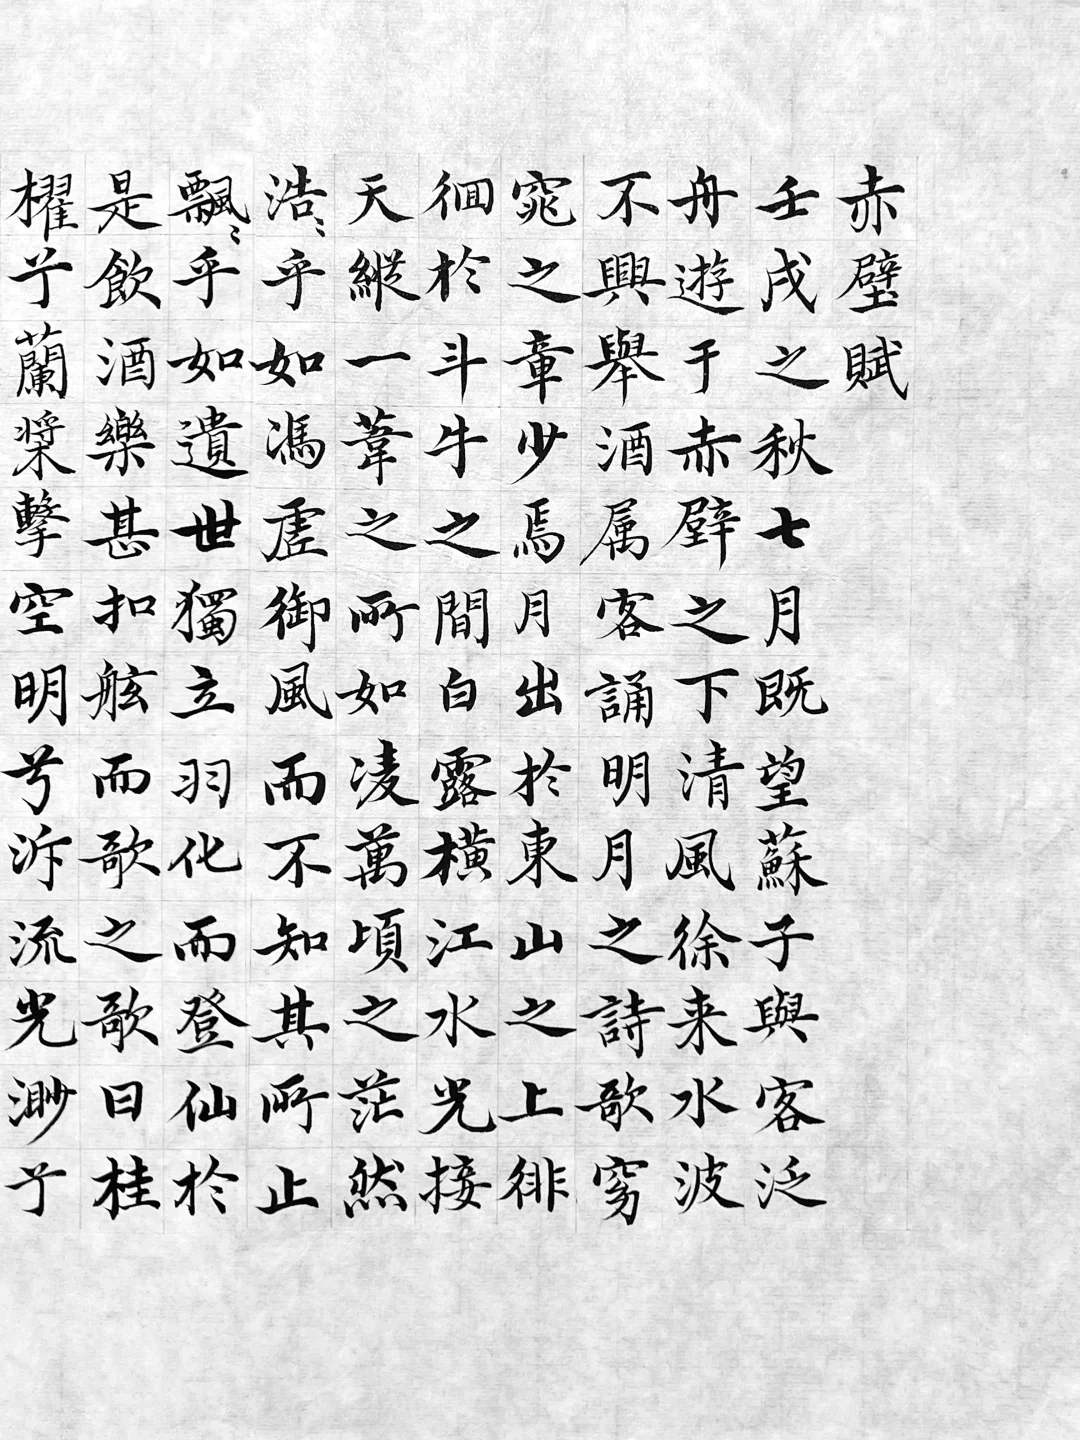 赤壁賦
壬戌之秋七月既望蘇子與客泛
舟遊于赤壁之下清風徐来水波
不興舉酒属客誦明月之詩歌窈
窕之章少焉月出於東山之上徘
徊於斗牛之間白露橫江水光接
天縱一葦之所如凌萬頃之茫然
浩〻乎如馮虛御風而不知其所止
飄〻乎如遺世獨立羽化而登仙於
是飲酒樂甚扣舷而歌之歌曰桂
櫂兮蘭槳擊空明兮泝流光渺兮